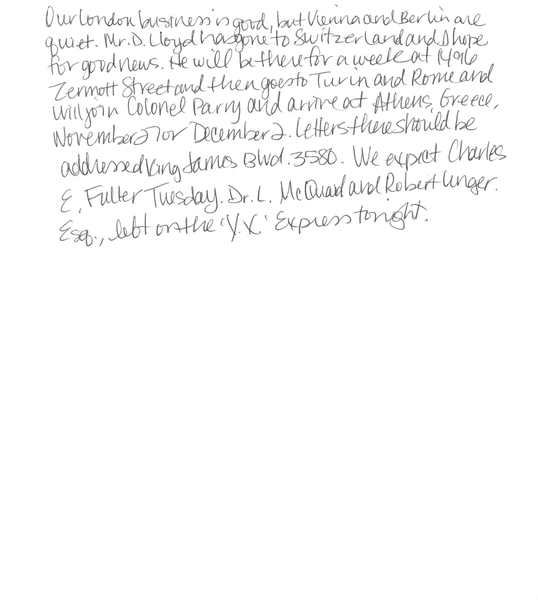 Our London business is good, but Vienna and Berlin are
quiet. Mr. D. Lloyd has gone to Switzerland and I hope
for good news. He will be there for a week at 1496
Zermott Street and then goes to Turin and Rome and
will join Colonel Parry and arrive at Athens, Greece,
November 27 or December 2. Letters there should be
addressed King James Blvd. 3580. We expect Charles
E. Fuller Tuesday. Dr. L. McQuad and Robert Unger.
Esq., left on the 'Y.X.' Express tonight.